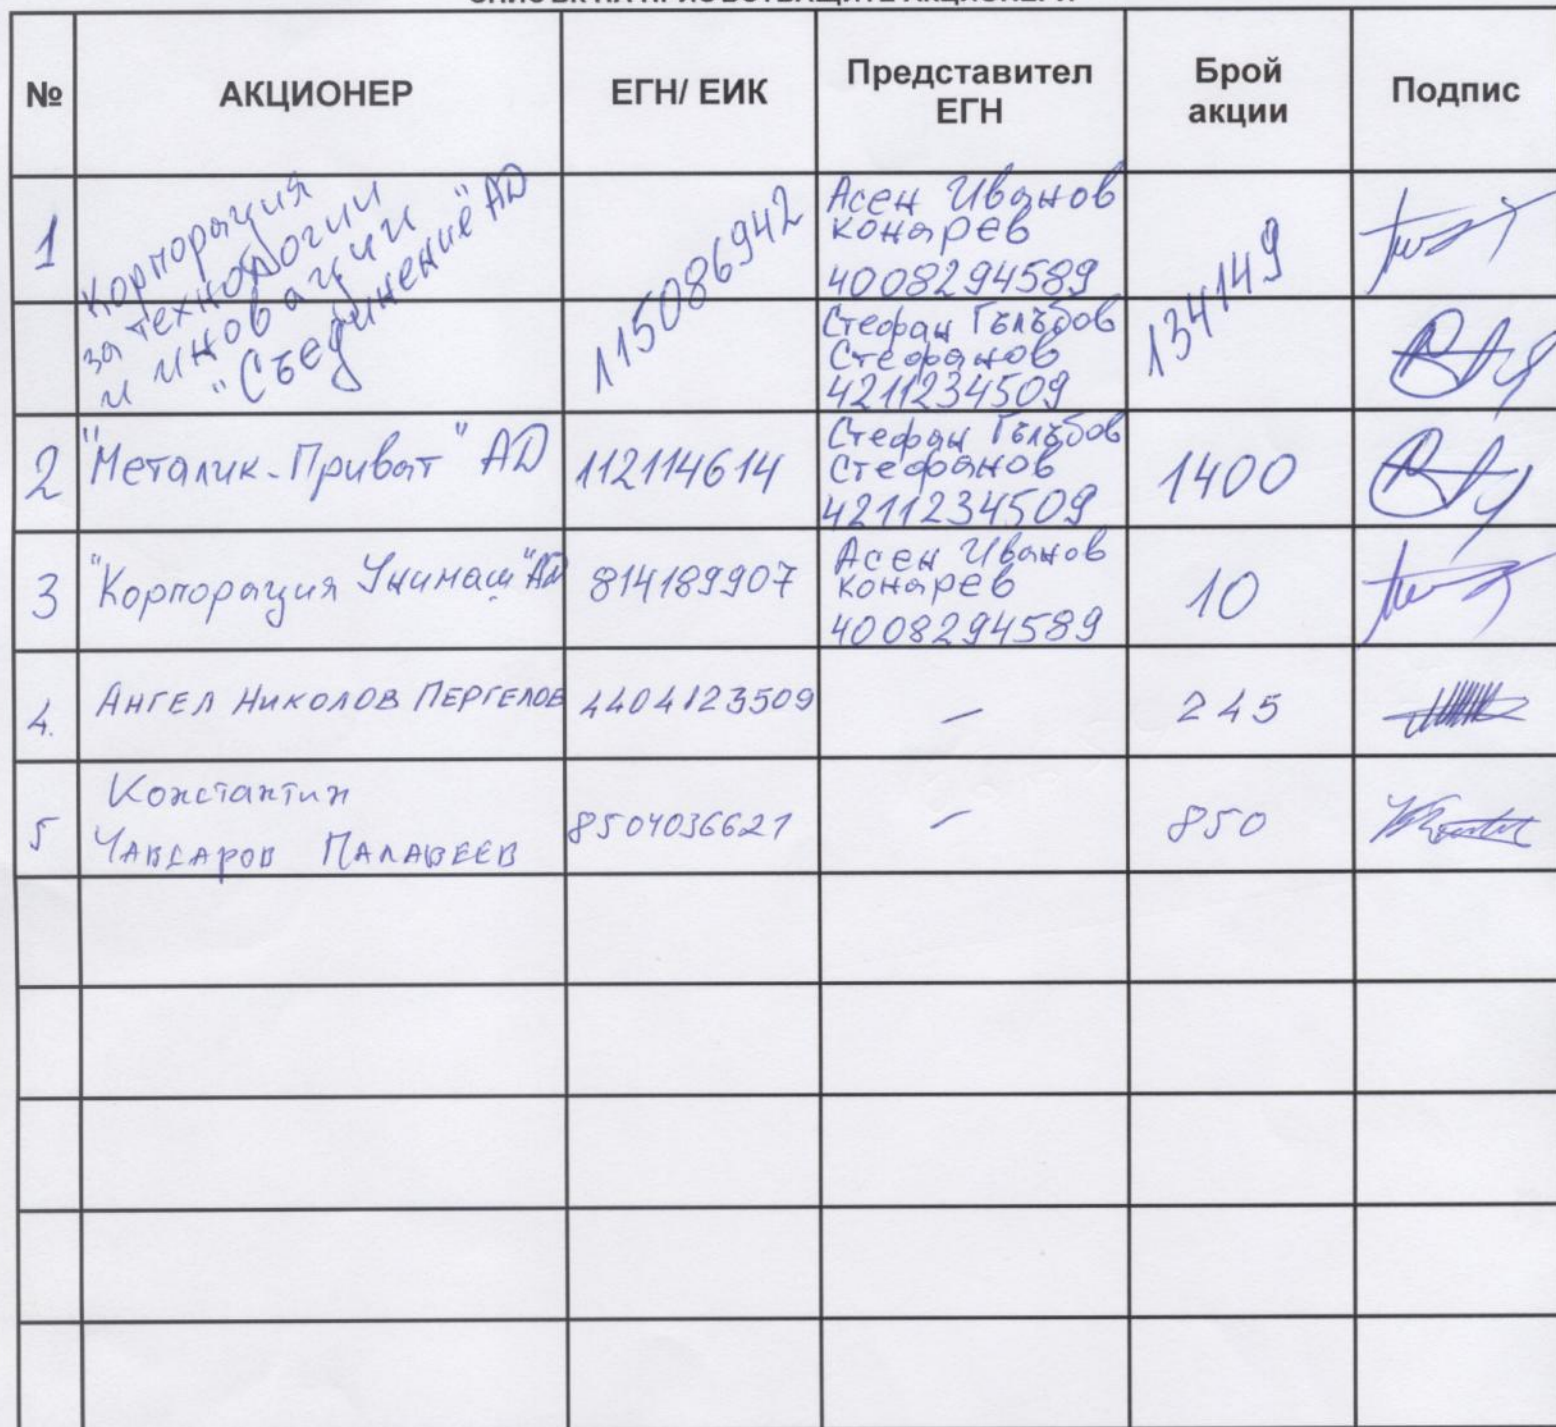 № АКЦИОНЕР ЕГН/ ЕИК Представител ЕГН Брой акции Подпис
1 Корпорация за технологии и иновации "Съединение" АД 115086942 Асен Иванов Конарев 4008294589 134149
Стефан Гълъбов Стефанов 4211234509
2 "Металик-Приват" АД 112114614 Стефан Гълъбов Стефанов 4211234509 1400
3 "Корпорация Унимаш" АД 814189907 Асен Иванов Конарев 4008294589 10
4. АНГЕЛ НИКОЛОВ ПЕРГЕЛОВ 4404123509 – 245
5 Константин ЧАВДАРОВ ПАЛАВЕЕВ 8504036621 – 850